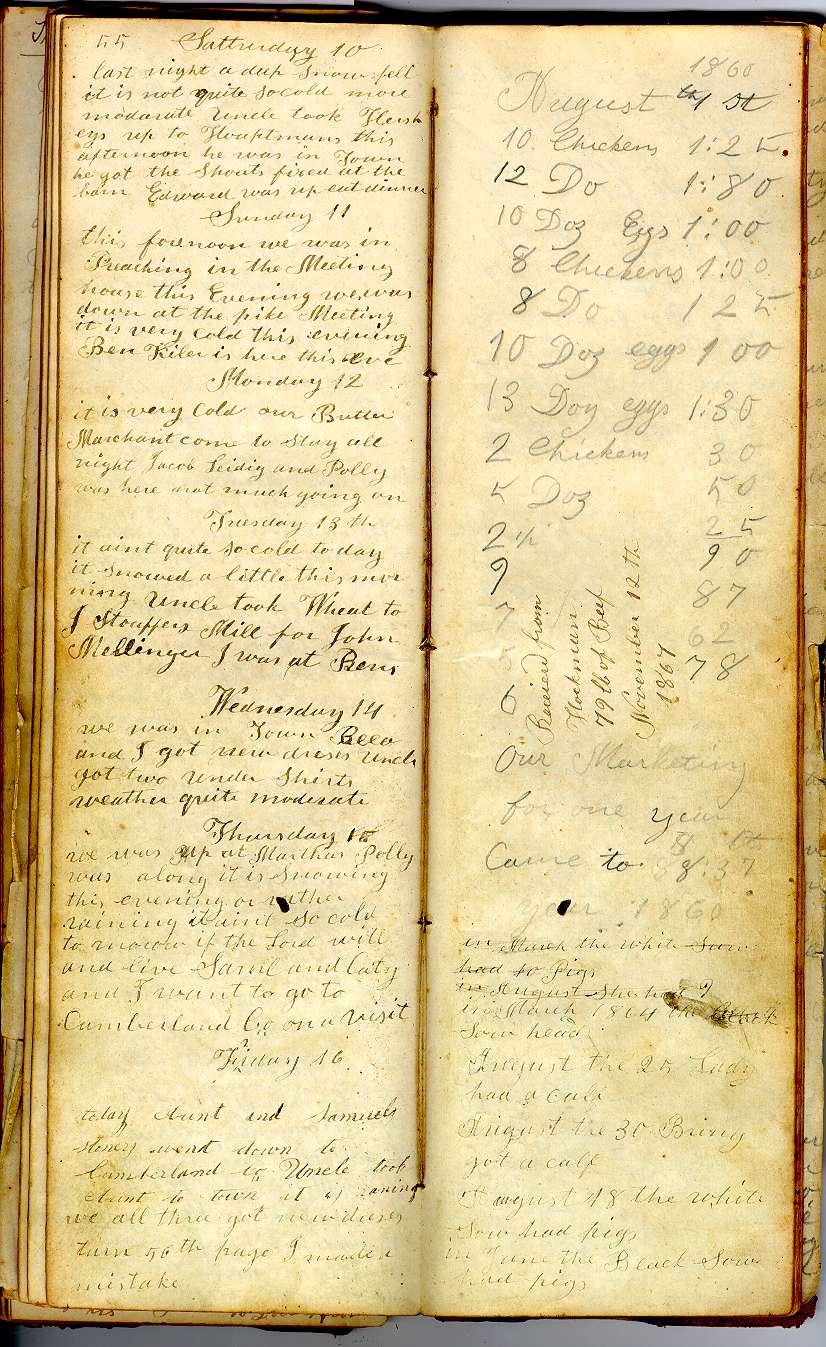 55 Satturday 10
last night a deep snow fell
it is not quite so cold more
modarate Uncle took Hersh
eys up to Houptmans this
afternoon he was in Town
he got the Shouts fixed at the
barn Edward was up eat dinner
Sunday 11
this forenoon we was in
Preaching in the Meeting
house this Evening we was
down at the pike Meeting
it is very cold this evening
Ben Kiler is here this eve
Monday 12
it is very Cold our Butter
Marchant come to Stay all
night Jacob Leidig and Polly
was here not much going on
Tuesday 13 th
it aint quite so cold to day
it snowed a little this mor
ning Uncle took Wheat to
J Stouffers Mill for John
Mellinger I was at Bens
Wednesday 14
we was in Town
and I got new dreses Uncle
got two under Shirts
weather quite moderate
Thursday 15
we was up at Marthas Polly
was along it is Snowing
this evening or rather
raining it aint so cold
to morow if the Lord will
and live Saml and Caty
and I want to go to
Cumberland Co on a Visit
Friday 16
today Aunt and Samuels
went down to
Cumberland co Uncle took
Aunt to town it is raning
we all three got new dreses
turn 56 th page I made a
mistake
1860
August th 1 st
10 Chickens 1:25
12 Do 1:80
10 Doz Eggs 1:00
8 Chickens 1:00
8 Do 1 25
10 Doz eggs 1 00
13 Doz eggs 1:30
2 Chickens 30
5 Doz 50
2 25
9 90
7 87
5 62
6 78
Received from
Hockman
79 lb of Beef
November 12 th
1867
Our Marketing
for one year
Came to 8:37
year 1860
in March the white Sow
had 10 Pigs
in August She had 9
in March 1864 the
Sow head
August the 25 Lady
had a calf
August the 30 Briny
got a calf
August 18 the white
Sow had pigs
in June the Black Sow
had pigs